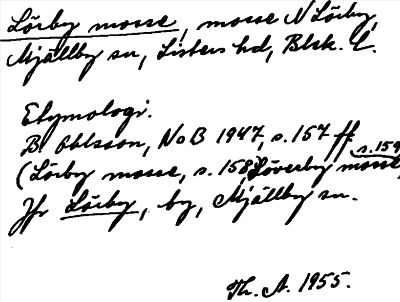 Lörby mosse, mosse N Lörby,
Mjällby sn, Listers hd, Blek. l.
Etymologi.
B. Ohlsson, NoB 1947, s. 157 ff
(Lörby mosse, s. 158, Löverby mosse, s. 159)
Jfr Lörby, by, Mjällby sn.
Th. A. 1955.